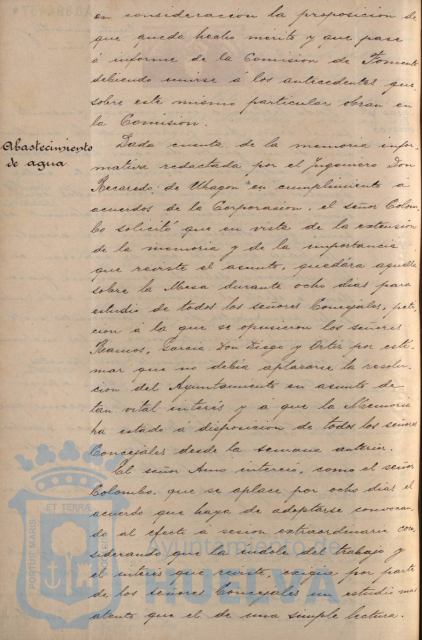 en consideracion la proposicion de
que queda hecho merito y que pase
á informe de la Comision de Fomento
debiendo unirse á los antecedentes que
sobre este mismo particular obran en
la Comision.
Abastecimiento
de agua
Dada cuenta de la memoria infor-
mativa redactada por el Ingeniero Don
Recaredo de Uhagon en cumplimiento a
acuerdos de la Corporacion, el señor Colom-
bo solicitó que en vista de la extension
de la memoria y de la importancia
que reviste el asunto, quedára aquella
sobre la Mesa durante ocho dias para
estudio de todos los señores Concejales, peti-
cion á la que se opusieron los señores
Ramos, Garcia Don Diego y Ortiz por esti-
mar que no debia aplazarse la resolu-
cion del Ayuntamiento en asunto de
tan vital interés y á que la Memoria
ha estado á disposicion de todos los señores
Concejales desde la semana anterior.
El señor Amo interesó, como el señor
Colombo, que se aplace por ocho dias el
acuerdo que haya de adoptarse convocan-
do al efecto á sesion extraordinaria con-
siderando que la indole del trabajo y
el interés que reviste exigen por parte
de los señores Concejales un estudio mas
atento que el de una simple lectura.
PORTUS MARIS
ET TERRÆ
Ayuntamiento de
HUELVA